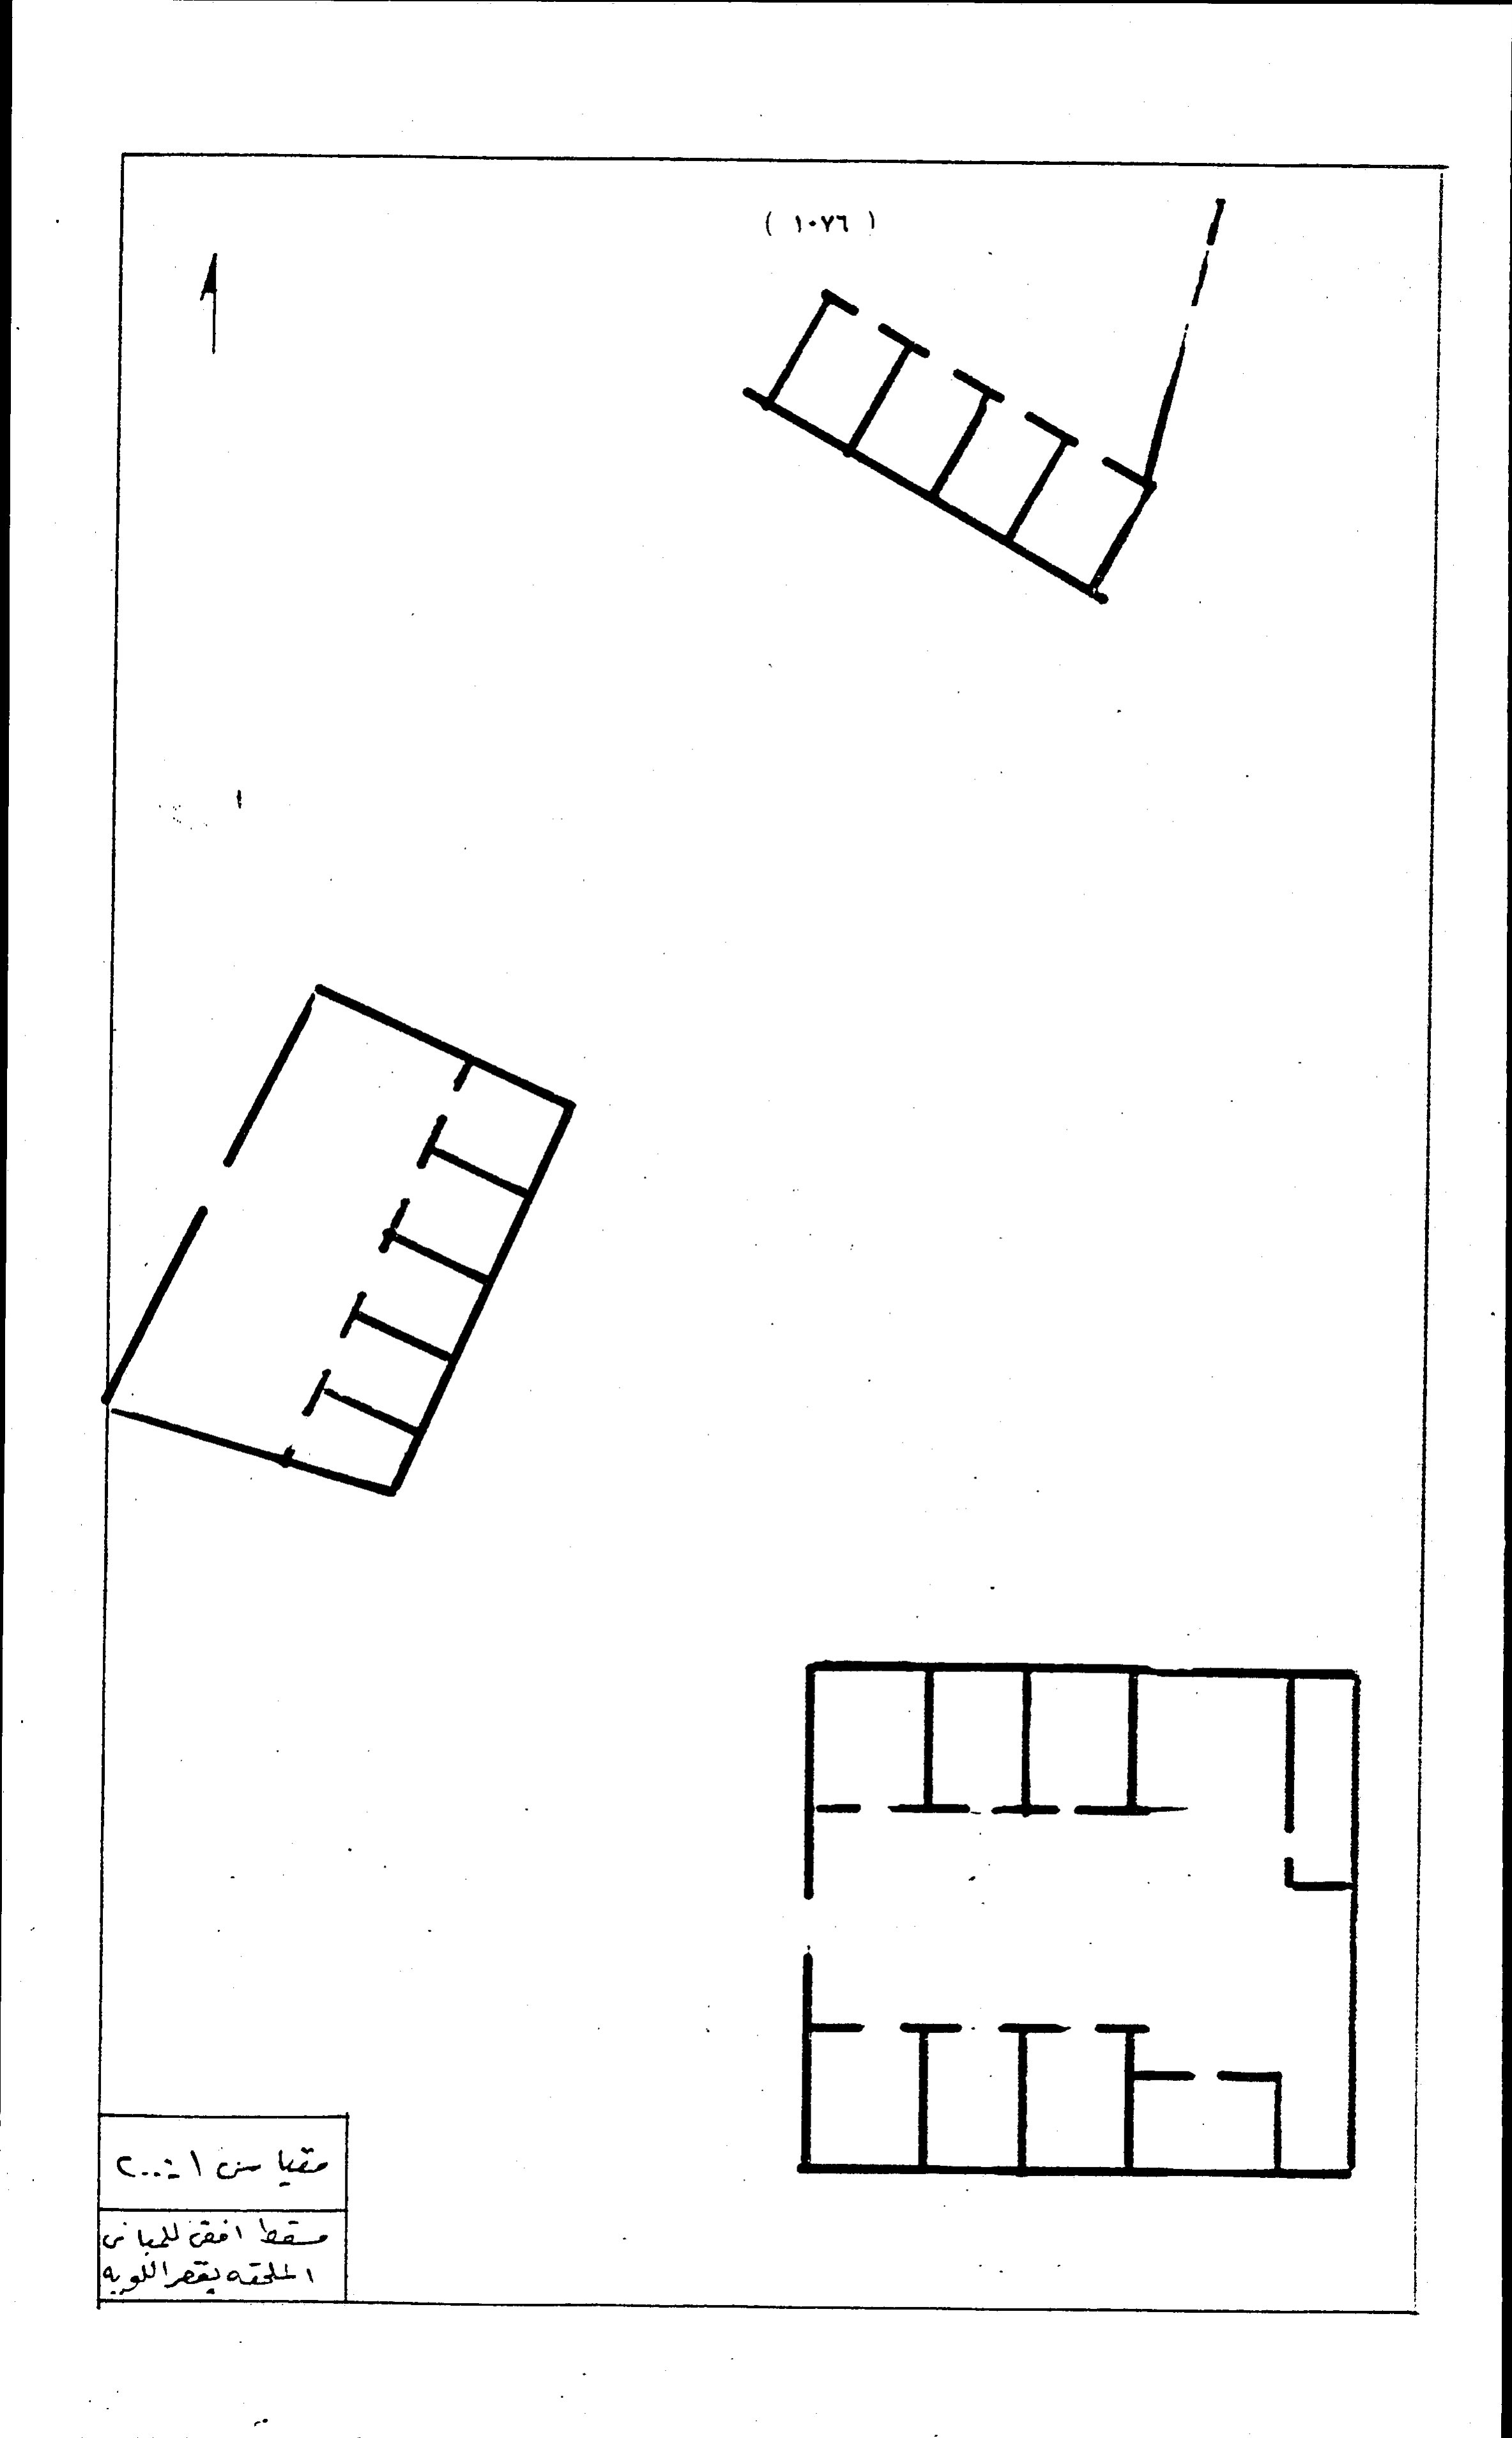 ( ١٠٧٦ )
مقياس ١ : ٢٠٠
مسقط افقى للمبانى
الملحقه بقصر اللويه